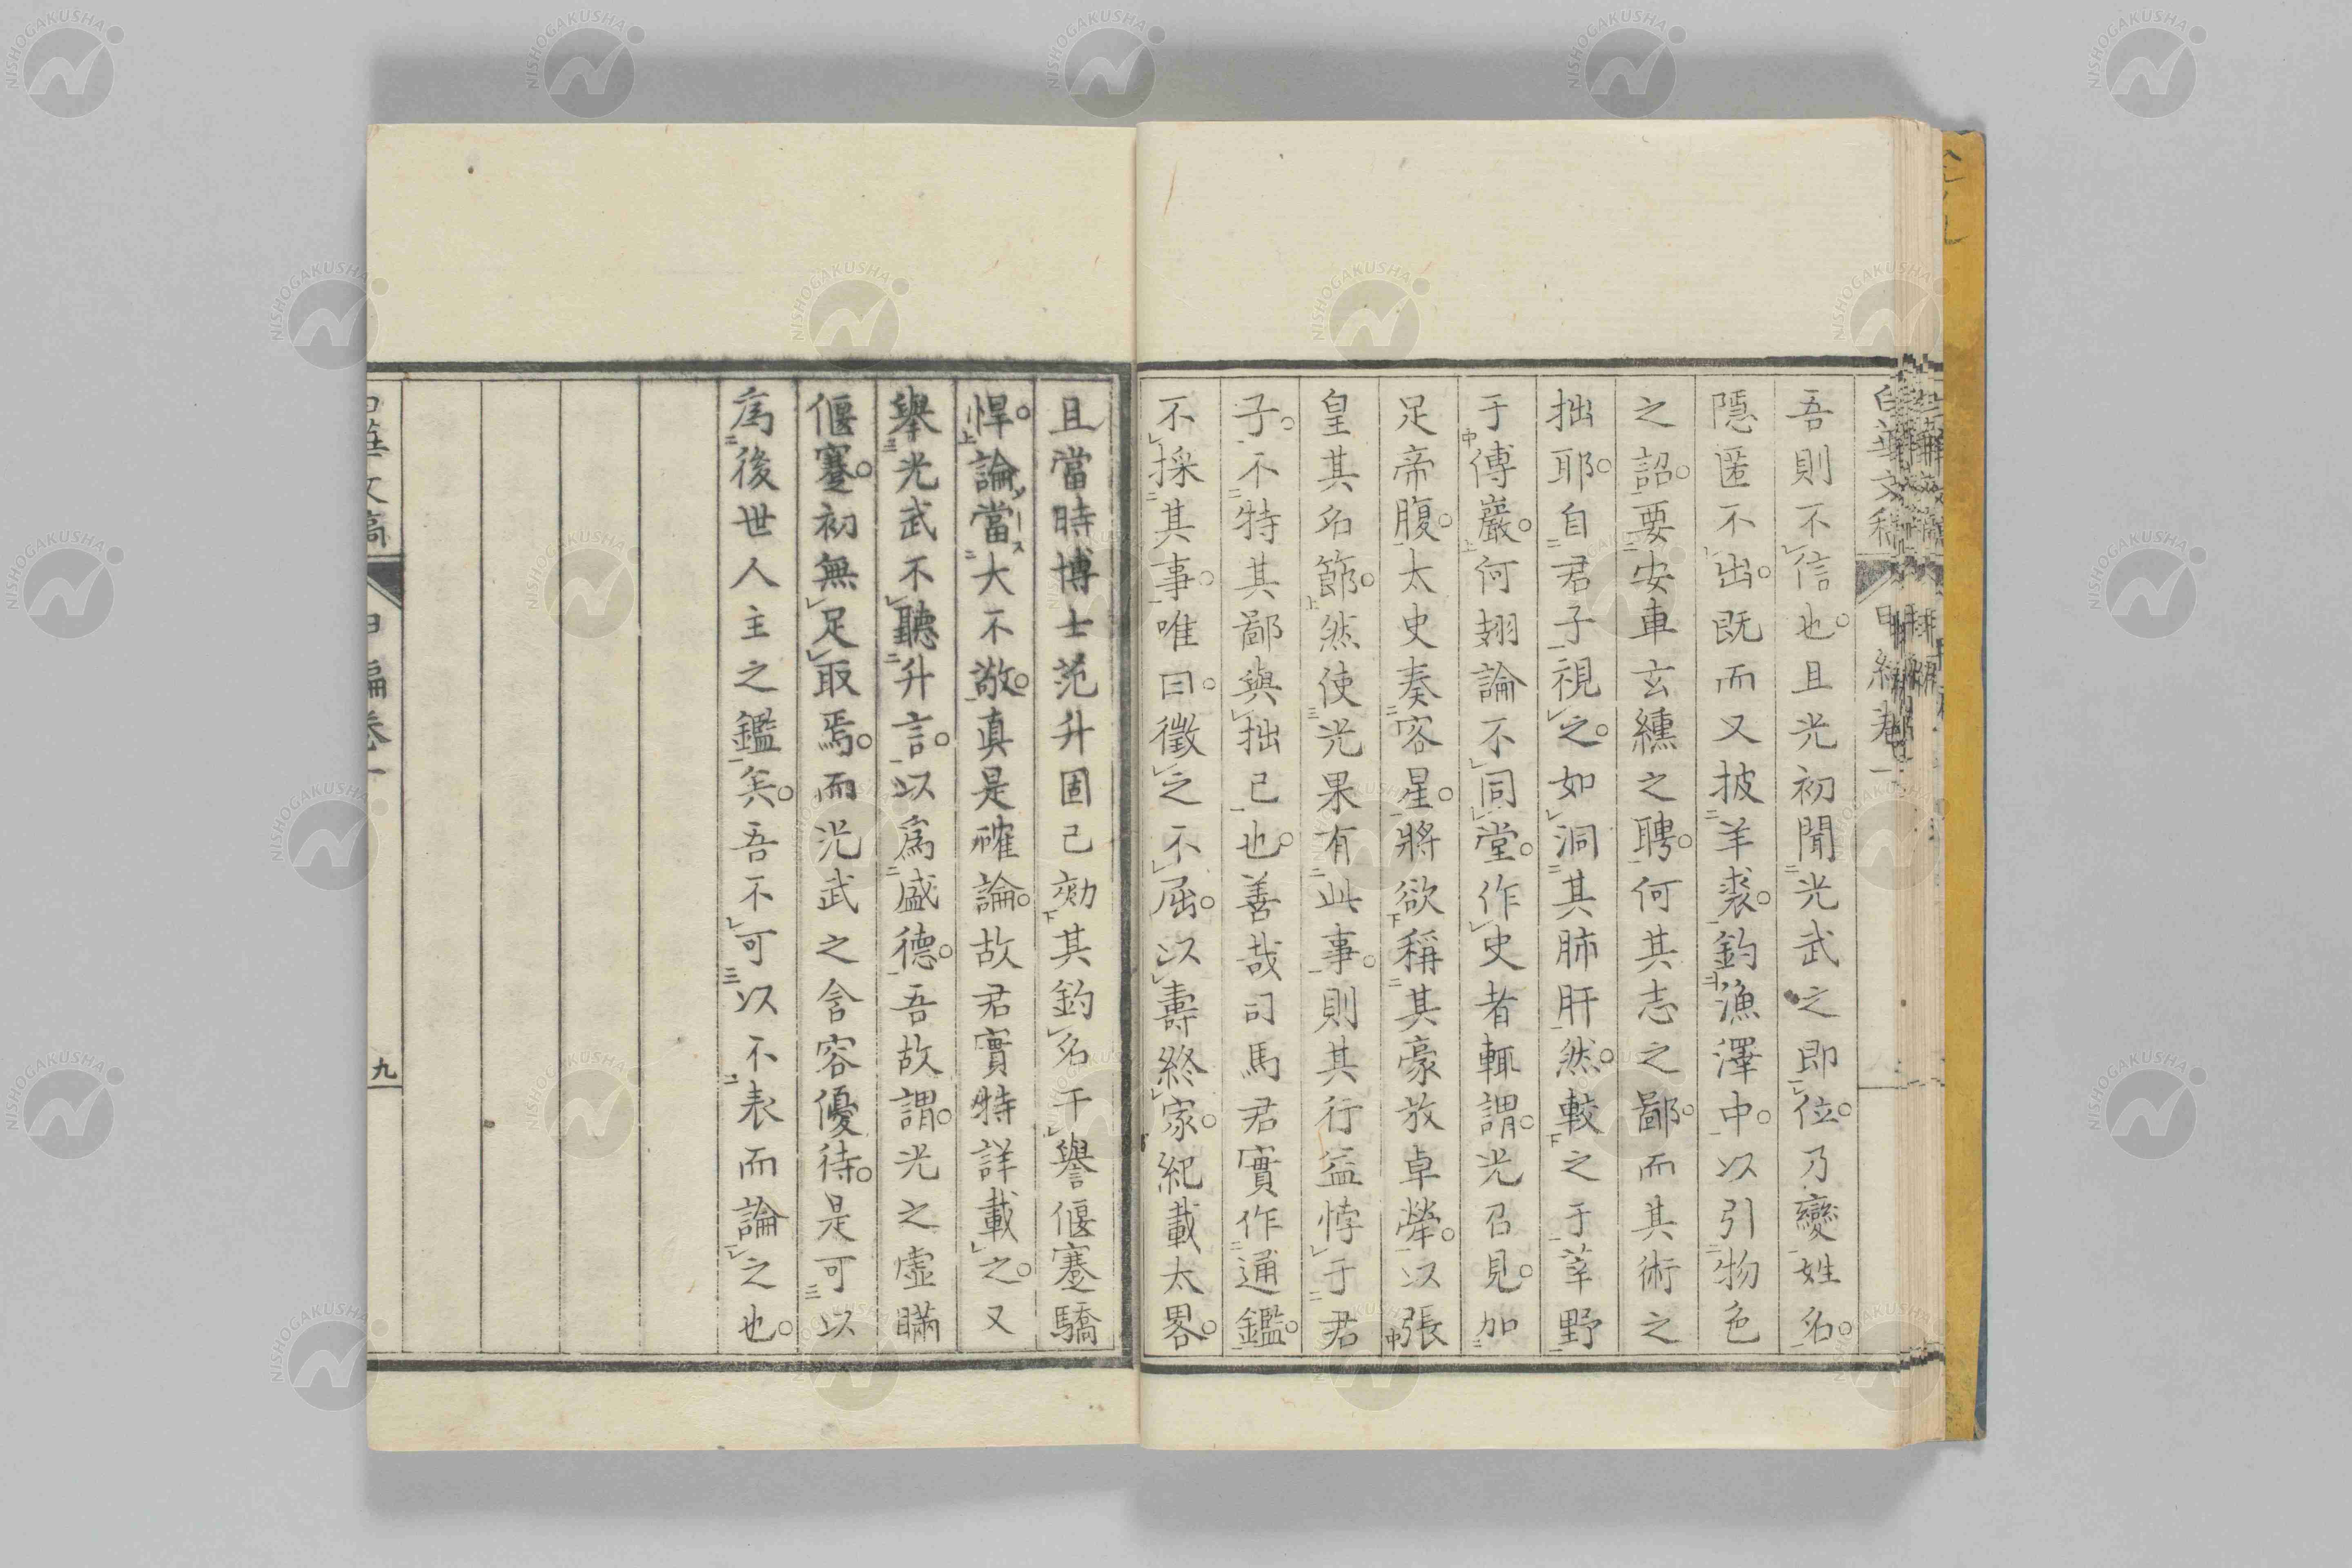 吾則不信也。且光初聞光武之即位。乃變姓名。
隱匿不出。既而又披羊裘。釣漁澤中。以引物色
之詔。要安車玄纁之聘。何其志之鄙。而其術之
拙耶。自君子視之。如洞其肺肝然。較之于莘野
于傅巖。何翅論不同堂。作史者輒謂。光召見。加
足帝腹。太史奏客星。將欲稱其豪放卓犖。以張
皇其名節。然使光果有此事。則其行益悖于君
子。不特其鄙與拙已也。善哉司馬君實作通鑑。
不採其事。唯曰。徵之不屈。以壽終家。紀載太畧。
且當時博士范升固已劾其釣名干譽偃蹇驕
悍。論當大不敬。真是確論。故君實特詳載之。又
舉光武不聽升言。以爲盛德。吾故謂。光之虛瞞
偃蹇。初無足取焉。而光武之含容優待。是可以
爲後世人主之鑑矣。吾不可以不表而論之也。
九
NISHOGAKUSHA